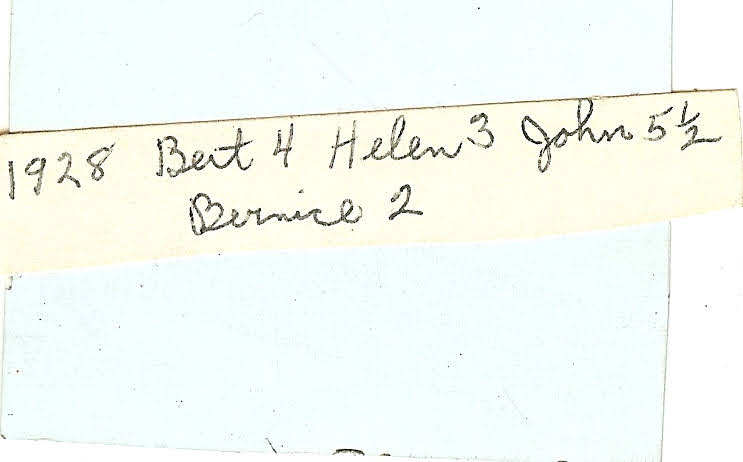 1928 Bert 4 Helen 3 John 5½
Bernice 2